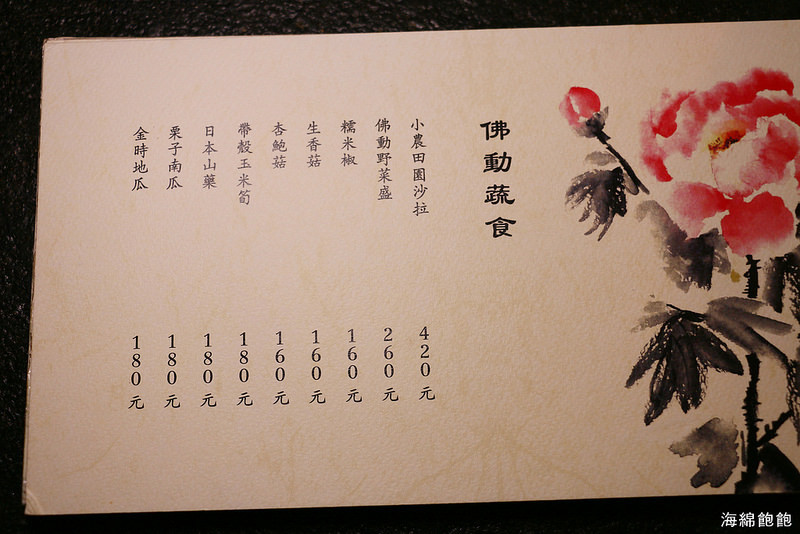 佛動蔬食
小農田園沙拉 420元
佛動野菜盛 260元
糯米椒 160元
生香菇 160元
杏鮑菇 160元
帶殼玉米筍 180元
日本山藥 180元
栗子南瓜 180元
金時地瓜 180元
海綿飽飽